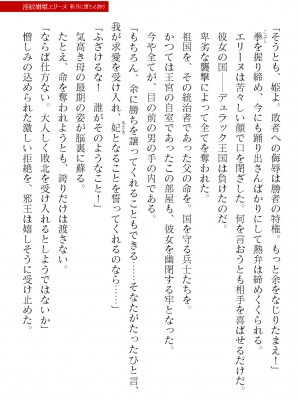 淫紋姫姫エリーヌ 新月に堕ちる誇り
「そうとも、姫よ。敗者への侮辱は勝者の特権。もっと余をなじりたまえ！」
拳を握り締め、今にも踊り出さんばかりにして熱弁は締めくくられる。
エリーヌは苦々しい顔で口を閉ざした。何を言おうとも相手を喜ばせるだけだ。
彼女の国――デュラック王国は負けたのだ。
卑劣な襲撃によって全てを奪われた。
祖国を、その統治者であった父の命を。国を守る兵士たちを。
かつては王宮の自室であったこの部屋も、彼女を幽閉する牢となった。
今や全てが、目の前の男の手の内である。
「もちろん、余に勝ちを譲ってくれることもできる……そなたがたったひと言、
我が求愛を受け入れ、妃となることを誓ってくれるのなら……」
「ふざけるな！　誰がそのようなこと！」
気高き母の最期の姿が脳裏に蘇る。
たとえ、命を奪われようとも、誇りだけは渡さない。
「ならば仕方ない。大人しく敗北を受け入れてくれようとしようではないか」
憎しみの込められた激しい拒絶を、邪王は嬉しそうに受け止めた。